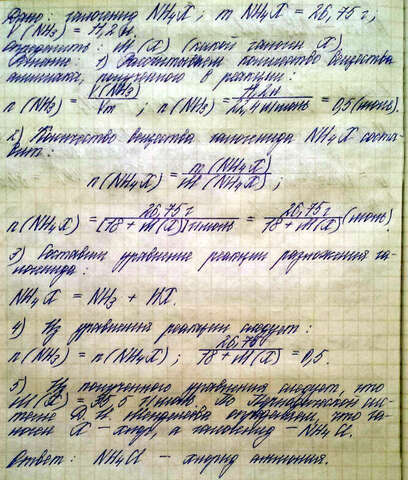 Дано: галогенид NH₄X; m NH₄X = 26,75 г;
V(NH₃) = 11,2 л.
Определить: M(X) (какой галоген X)
Решение: 1) Рассчитываем количество вещества
аммиака, полученного в реакции:
n(NH₃) = V(NH₃)/Vm ; n(NH₃) = 11,2 л/22,4 л/моль = 0,5 (моль).
2) Количество вещества галогенида NH₄X соста-
вит:
n(NH₄X) = m(NH₄X)/M(NH₄X) ;
n(NH₄X) = 26,75 г/[18 + M(X)] г/моль = 26,75 г/18 + M(X) (моль).
3) Составим уравнение реакции разложения га-
логенида:
NH₄X = NH₃ + HX.
4) Из уравнения реакции следует:
n(NH₃) = n(NH₄X) ; 26,75/18 + M(X) = 0,5.
5) Из полученного уравнения следует, что
M(X) = 35,5 г/моль. По Периодической сис-
теме Д. И. Менделеева определяем, что га-
логен X - хлор, а галогенид - NH₄Cl.
Ответ: NH₄Cl - хлорид аммония.